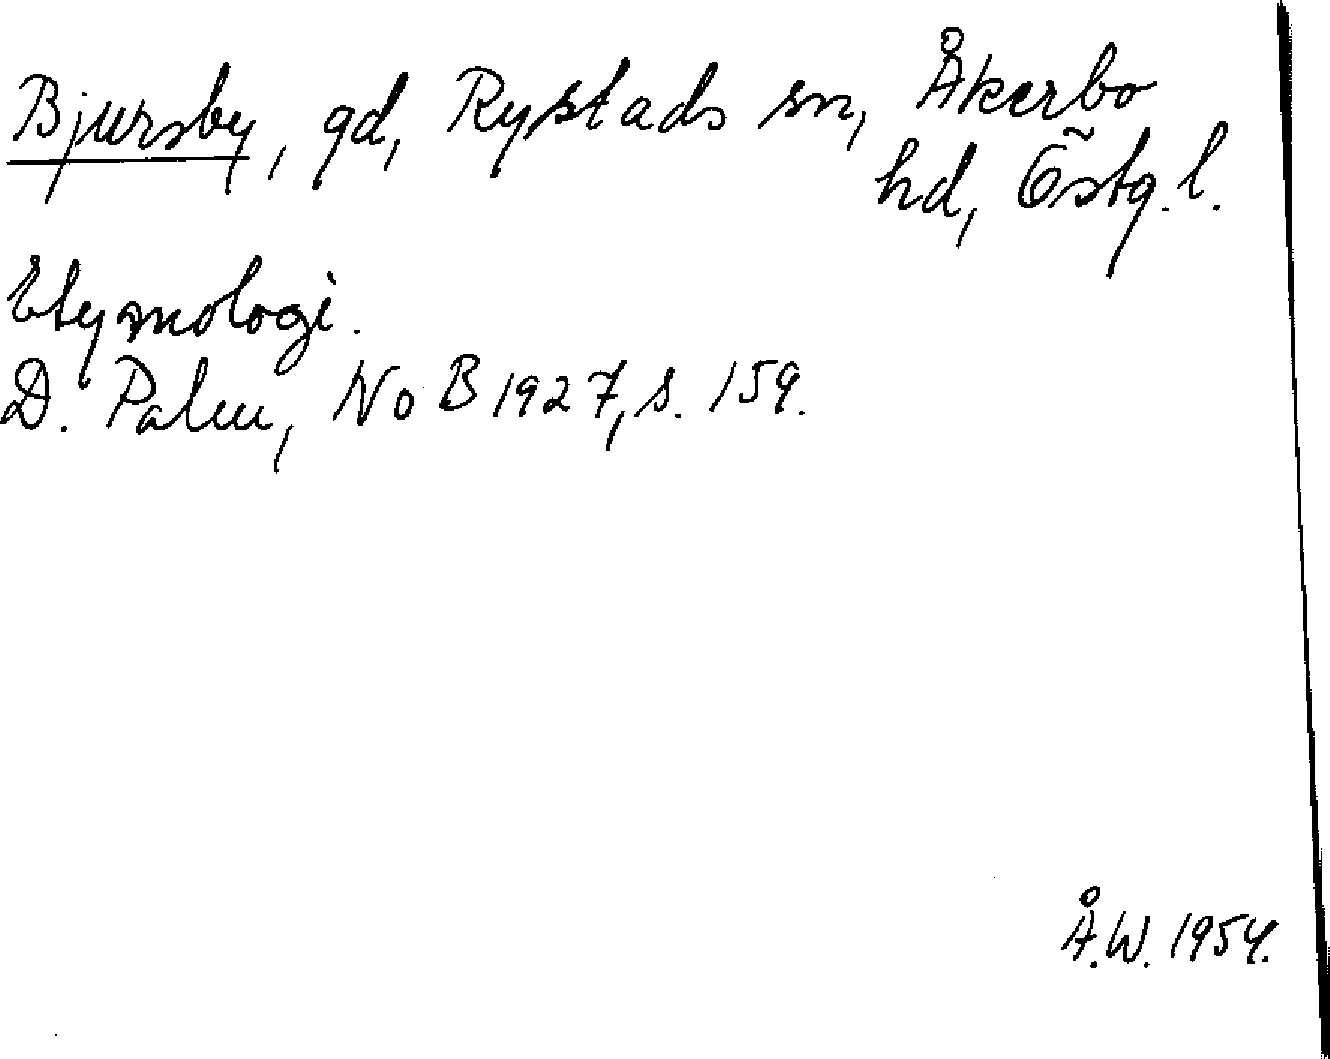 Bjursby, gd, Rystads sn, Åkerbo
hd, Östg. l.
Etymologi.
D. Palm, NoB 1927, s. 159.
Å.W. 1954.